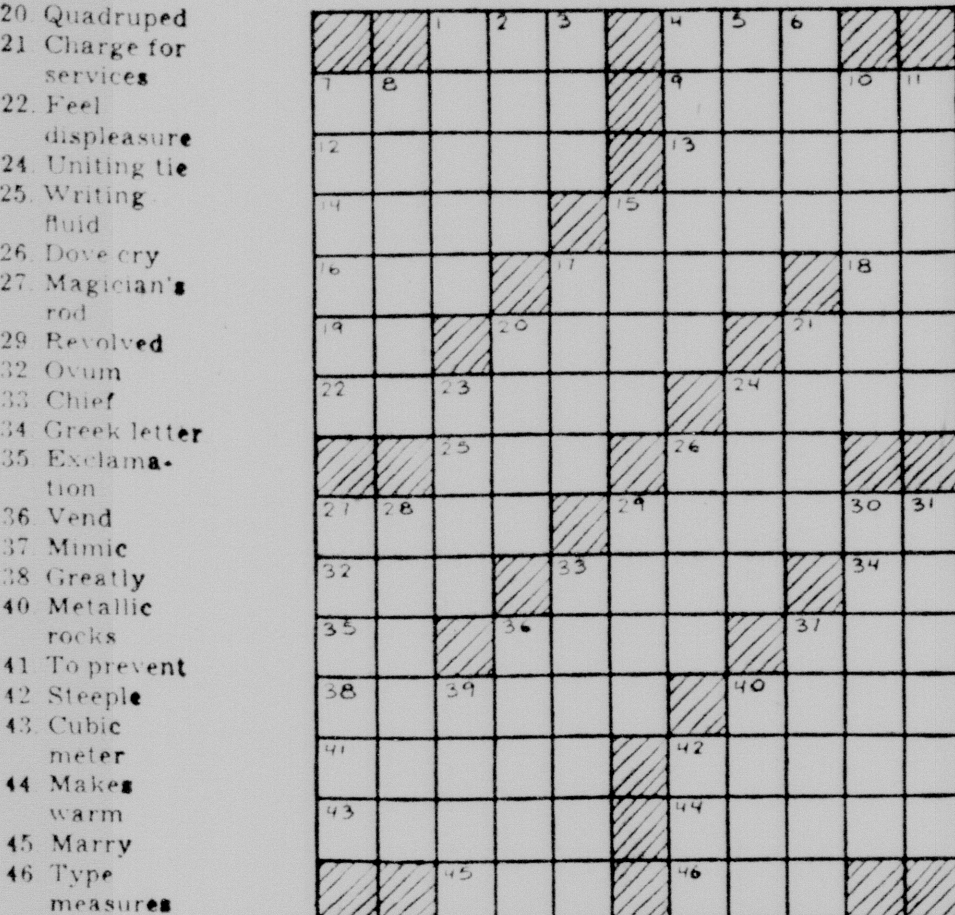 20. Quadruped
21 Charge for
services
22. Feel
displeasure
24. Uniting tie
25. Writing
fluid
26. Dove cry
27. Magician's
rod
29. Revolved
32 Ovum
33 Chief
34. Greek letter
35. Exclama-
tion
36. Vend
37. Mimic
38 Greatly
40. Metallic
rocks
41 To prevent
42 Steeple
43. Cubic
meter
44 Makes
warm
45 Marry
46 Type
measures
1 2 3 4 5 6
7 8 9 10 11
12 13
14 15
16 17 18
19 20 21
22 23 24
25 26
27 28 29 30 31
32 33 34
35 36 37
38 39 40
41 42
43 44
45 46